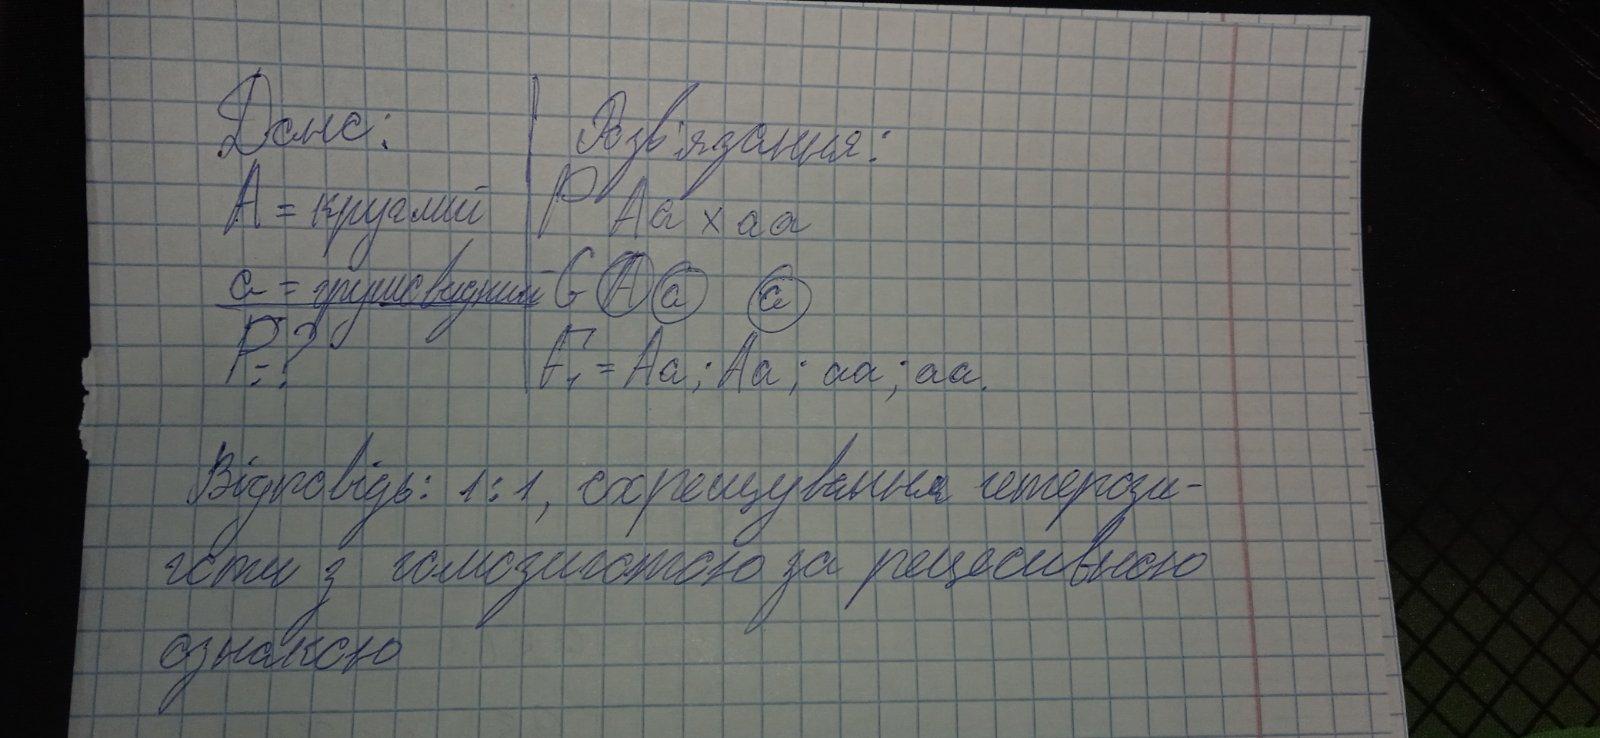 Дано: Розв'язання:
A = круглий P Aa x aa
a = грушовидний G A a a
P = ? F₁ = Aa; Aa; aa; aa.
Відповідь: 1:1, схрещування гетерози-
готи з гомозиготою за рецесивною
ознакою